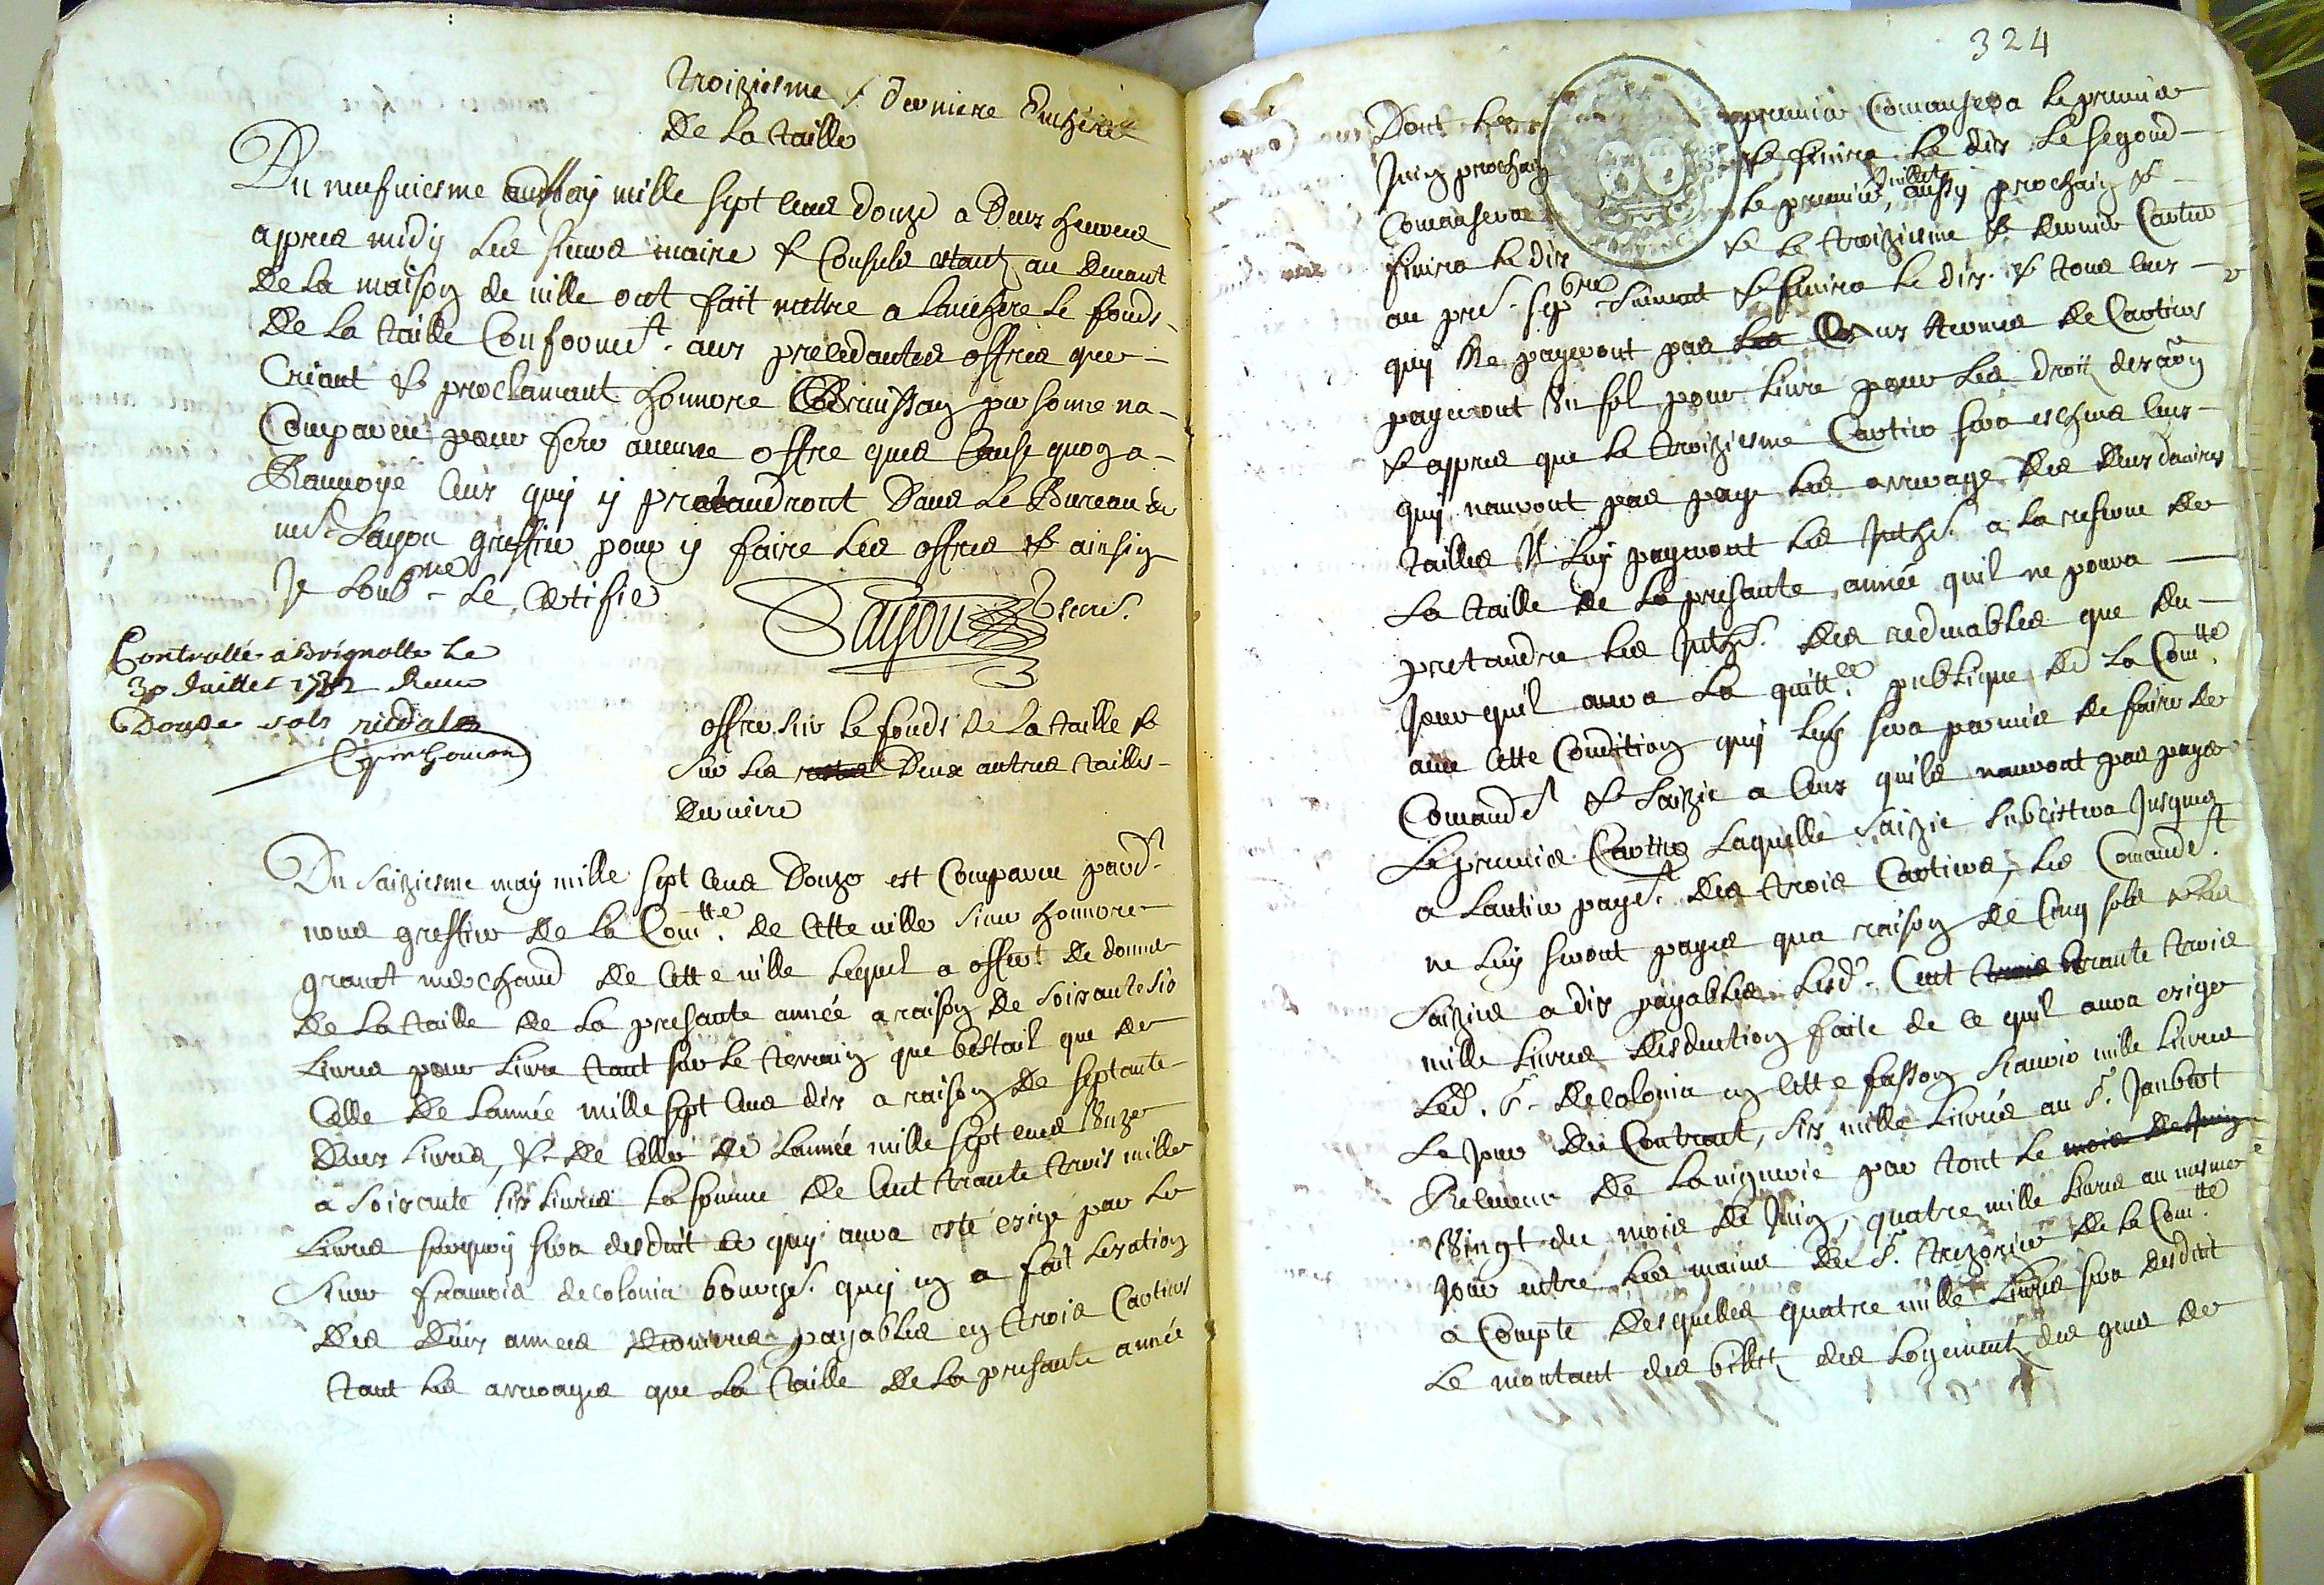 troiziesme & derniere Enchere
De La taille
Du neufviesme may mille sept cens douze a Deux heures
appres midy Les sieurs maire & Consuls estant au devant
de La maison de ville ont fait mettre a Lanchere Le fonds
De La taille Conformet. aux precedantes offres que
Criant & proclamant honnore Brunssan personne na
Comparu pour fere aucune offre ques Cause quoy a
Ranvoyé Ceux quy y pretandront Dans Le Bureau de
me Sayou greffier pour y faire Les offres & ainsin
Je soubne Le Certifie
Sayou secre.
Controllé a Brignolle Le
30 Juillet 1712 Receu
Douze sols
offre sur Le fonds de La taille &
sur Les restes Deux autres tailles
derniere
Du saiziesme may mille sept cens Douze est Comparu pard.
nous greffier de La Comtte. de Cette ville sieur honnore
granet merchand de Cette ville Lequel a offert de donner
de La taille de La presante année a raison de soixante six
Livres pour Livre tant sur Le terrain que bestail que de
Celle de Lannée mille sept cens dix a raison de septante
Deux Livres, & de Celle de Lannée mille sept cens Onze
a soixante six Livres La somme de Cent trante trois mille
Livres surquoy sera desduit Ce quy aura esté exigé par Le
sieur francois decolonia bourgs. quy en a fait Lexation
des deux années dernieres payables en trois Cartiers
tant Les arreages que La taille de La presante année
324
Dont Le premier Comansera Le premier
Juin prochain & finira Le dix Le segond
Comansera Le premier Juillet aussy prochain &
finira Le dix & Le troiziesme & dernier Cartier
au pre. sepbre suivant & finira Le dix & tous ceux
quy Ne payeront pas Les Deux termes de Cartiers
payeront Un sol pour Livre pour Les droit dexaon
& appres que Le troiziesme Cartier sera escheu Ceux
quy nauront pas paye Les arreage des deux darnieres
tailles Il Luy payeront Les Inths. a La reserve de
La taille de La presante année quil ne poura
pretandre Les Inths. des redevables que du
Jour quil aura La quittce. publique de La Comtte.
avec Cette Condition quy Luy sera permis de faire de
Comandet & saizie a Ceux quils nauront pas payé
Le premier Cartier Laquelle saizie subcistera Jusques
a Lantier payet. des trois Cartiers, Les Comandet.
ne Luy seront payes qua raison de Cinq sols & Les
saizies a dix payables Lesd. Cent trois trante trois
mille Livres desduction faite de Ce quil aura exigé
Led. sr. decolonia en Cette fasson scavoir mille Livres
Le Jour du Contract, six mille Livres au sr. Jaubert
Reseveur de La viguerie par tout Le mois de Juin
Vingt du mois de Juin, quatre mille Livres au mesme
Jour entre Les mains du sr. trezorier de La Comtte.
a Compte desquelles quatre mille Livres sera desduit
Le montant des billets des Logement des gens de